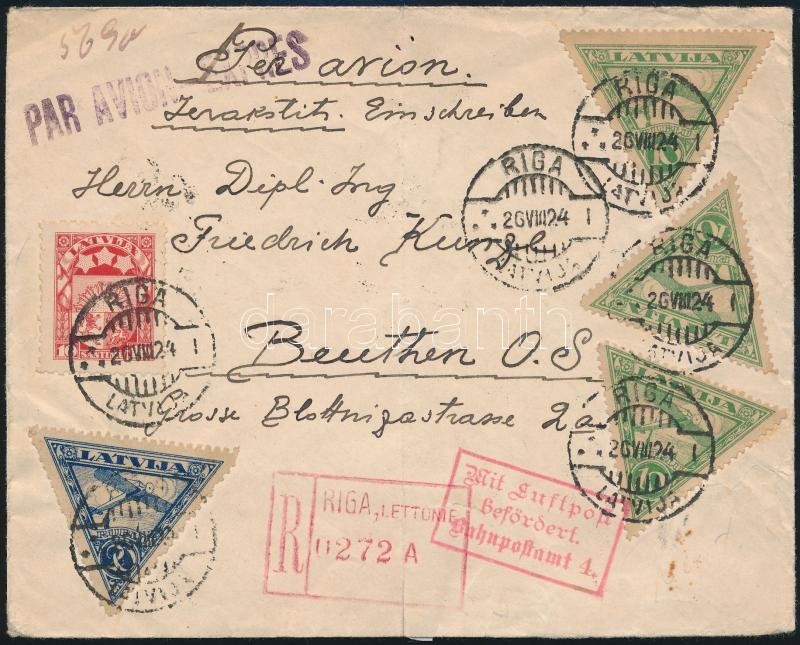 569a
Per avion.
PAR AVION
Ierakstīts. Einschreiben
Herrn Dipl.-Ing
Friedrich Kunzel
Beuthen O.S
Grosse Blottnizastrasse 2a
LATVIJA
RIGA
26VIII24
LATVIJA
RIGA
26VIII24
LATVIJA
RIGA
26VIII24
LATVIJA
LATVIJA
RIGA
26VIII24
LATVIJA
LATVIJA
RIGA
26VIII24
LATVIJA
darabanth
LATVIJA
LATVIJA
R
RIGA, LETTONIE
0272 A
Mit Luftpost
befördert.
Bahnpostamt 4.